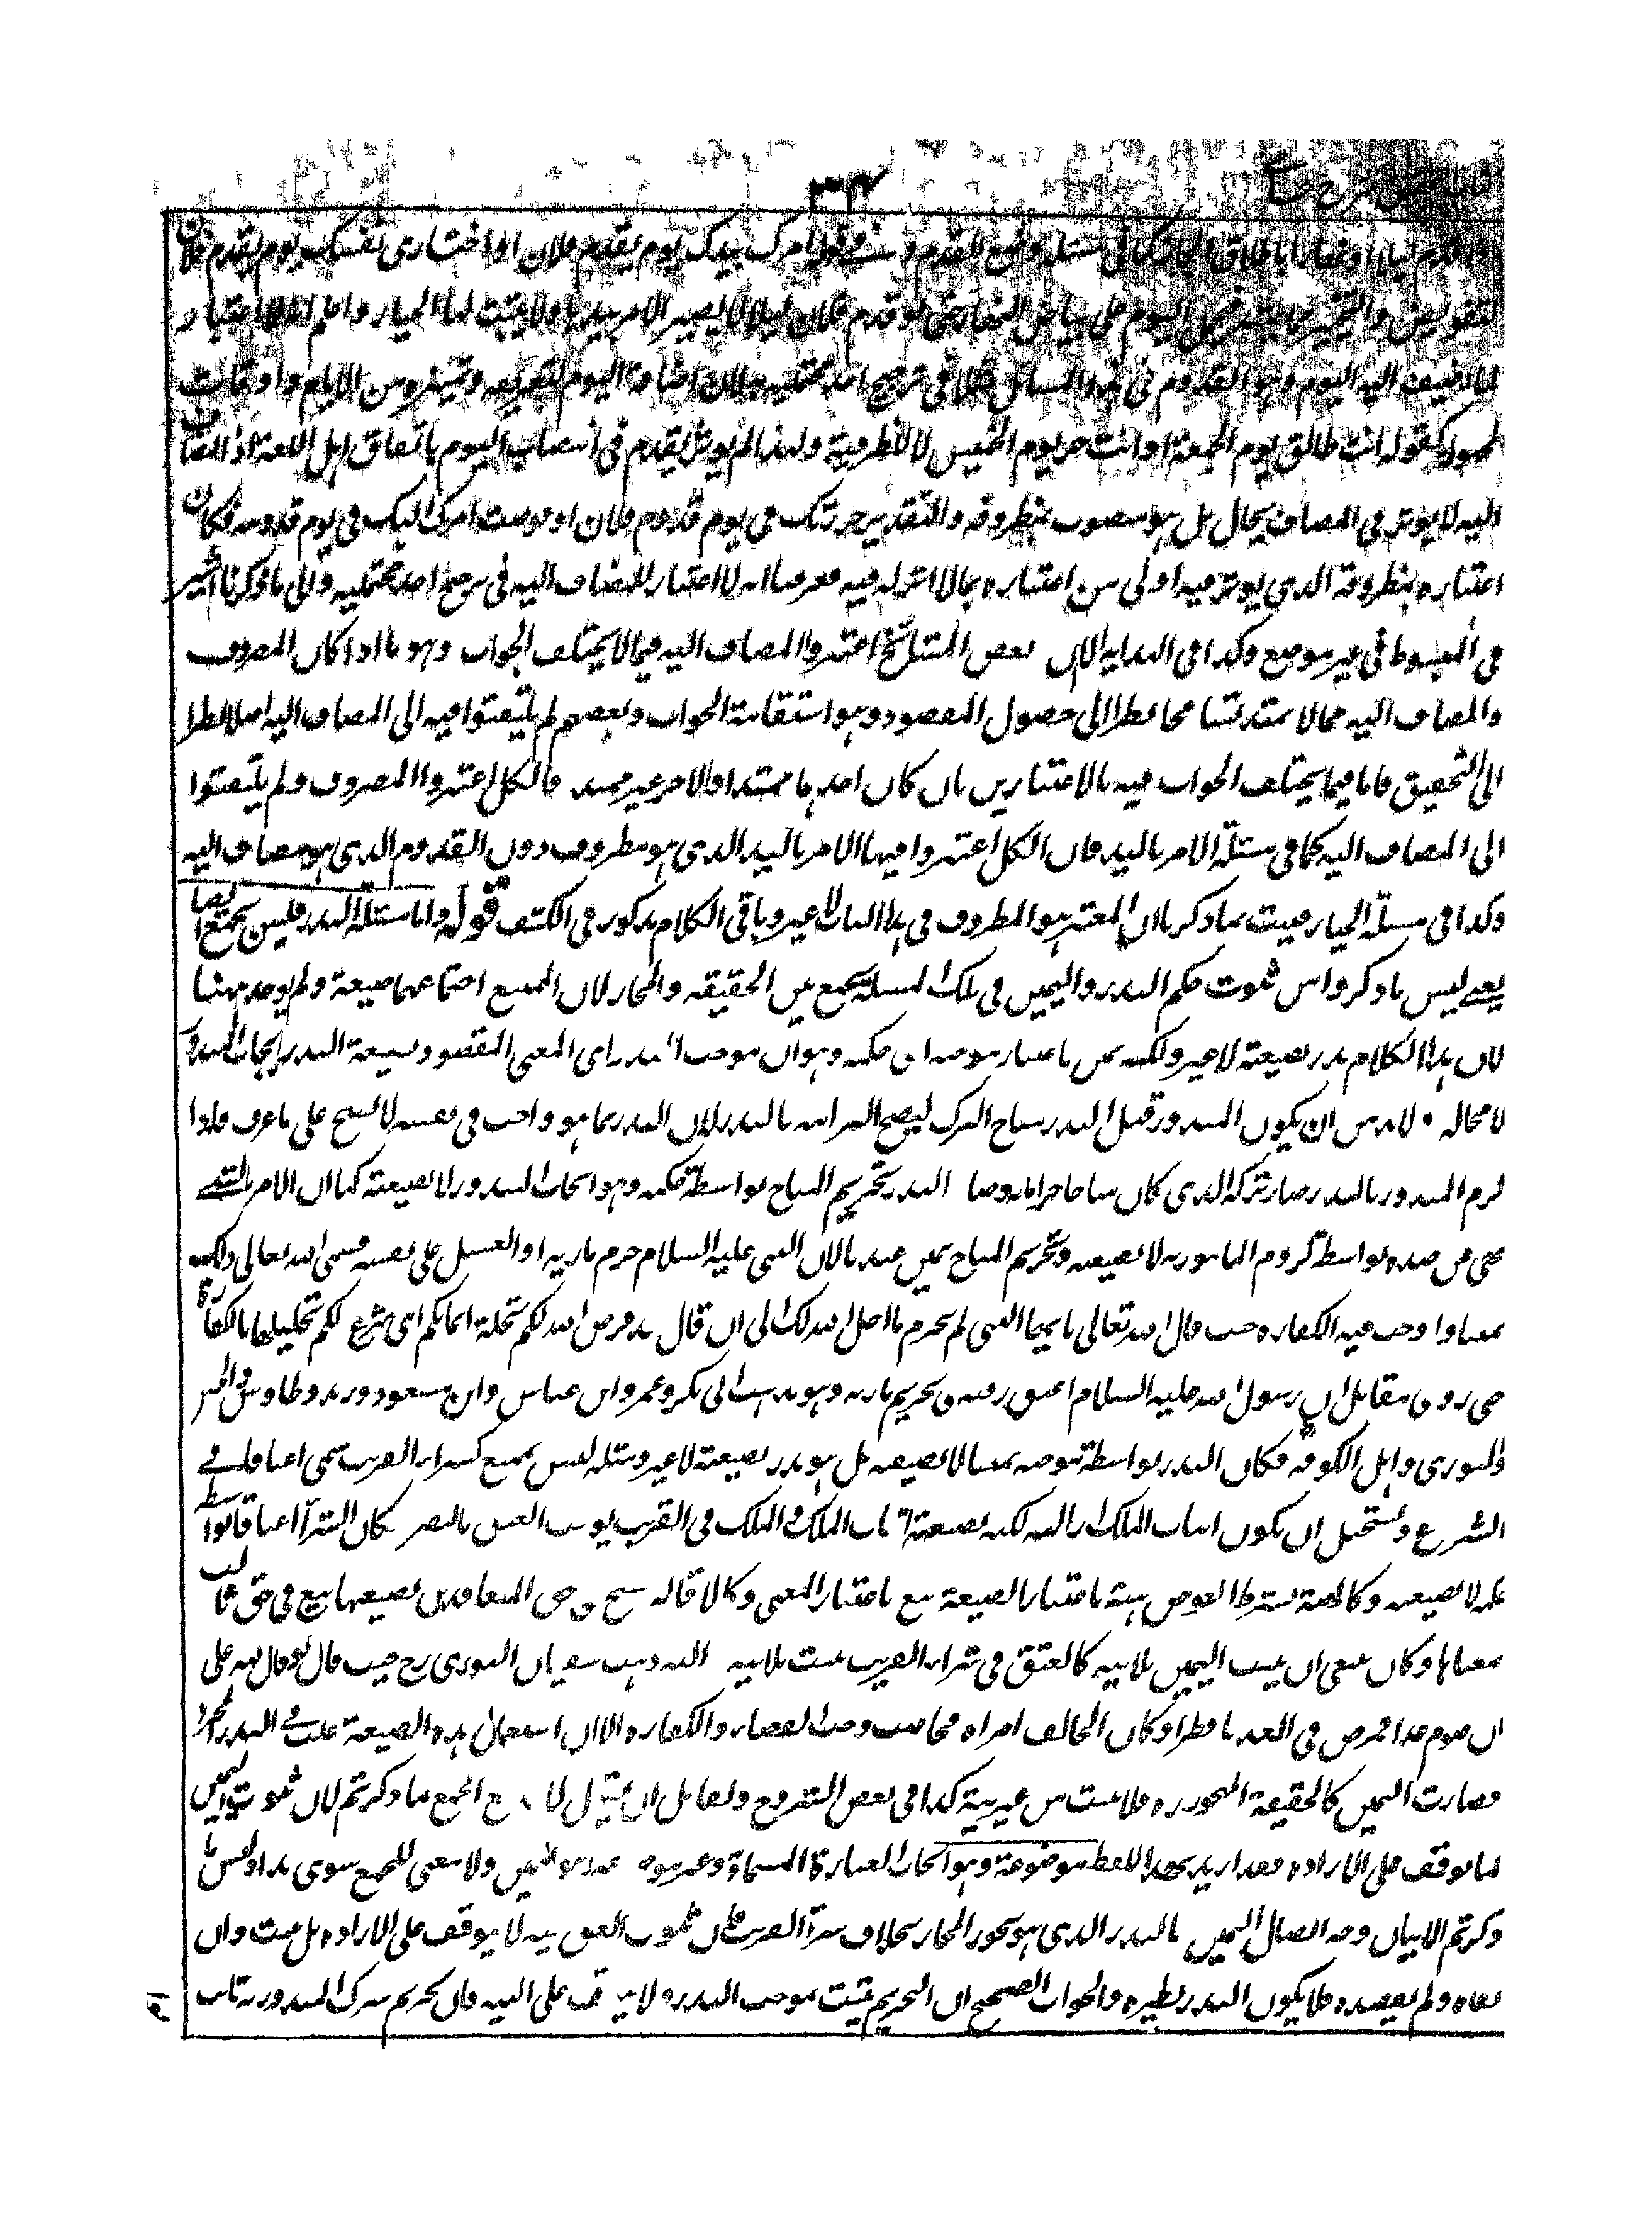 ٣٤
قوله امرك بيدك يوم يقدم فلان او اختارى نفسك يوم يقدم فلان
اليوم على بياض النهار حتى لو قدم فلان ليلا لا يصير الامر بيدها ولا يثبت لها الخيار واعلم انه لا اعتبار
لما اضيف اليه اليوم وهو القدوم فى هذه المسائل فى ترجيح احد محتمليه لان اضافة اليوم لتعريفه وتمييزه من الايام والاوقات
المجهولة كقوله انت طالق يوم الجمعة او انت حر يوم الخميس لا للظرفية ولهذا لم يؤثر يقدم فى انتصاب اليوم باتفاق اهل اللغة اذ المضاف
اليه لا يؤثر فى المضاف بحال بل هو منصوب بمظروفه والتقدير حررتك فى يوم قدوم فلان او فوضت امرك اليك فى يوم قدومه فكان
اعتباره بمظروفه الذى يؤثر فيه اولى من اعتباره بما لا اثر له فيه فعرفنا انه لا اعتبار للمضاف اليه فى ترجيح احد محتمليه والى ما ذكرنا اشير
فى المبسوط فى غير موضع وكذا فى الهداية الا ان بعض المشائخ اعتبروا المضاف اليه فيما لا يختلف الجواب وهو ما اذا كان المظروف
والمضاف اليه مما لا يمتد تسامحا نظرا الى حصول المقصود وهو استقامة الجواب وبعضهم لم يلتفتوا فيه الى المضاف اليه اصلا نظرا
الى التحقيق فاما فيما يختلف الجواب فيه بالاعتبارين بان كان احدهما ممتدا والاخر غير ممتد فالكل اعتبروا المظروف ولم يلتفتوا
الى المضاف اليه كما فى مسئلة الامر باليد فان الكل اعتبروا فيها الامر باليد الذى هو مظروف دون القدوم الذى هو مضاف اليه
وكذا فى مسئلة الخيار فثبت بما ذكرنا ان المعتبر هو المظروف فى هذا الباب لا غير وباقى الكلام مذكور فى الكشف قوله واما مسئلة النذر فليس بجمع ايضا
يعنى ليس ما ذكروا من ثبوت حكم النذر واليمين فى تلك المسئلة بجمع بين الحقيقة والمجاز لان الممتنع اجتماعهما صيغة ولم يوجد ههنا
لان هذا الكلام نذر بصيغته لا غير ولكنه يمين باعتبار موجبه اى حكمه وهو ان موجب النذر اى المعنى المقصود بصيغة النذر ايجاب المنذور
لا محالة ٠ لا بد من ان يكون المنذور قبل النذر مباح الترك ليصح التزامه بالنذر لان النذر بما هو واجب فى نفسه لا يصح على ما عرف فاذا
لزم المنذور بالنذر صار تركه الذى كان مباحا حراما وصار النذر تحريم المباح بواسطة حكمه وهو ايجاب المنذور لا بصيغته كما ان الامر بالشئ
نهى عن ضده بواسطة لزوم المامور به لا بصيغته وتحريم المباح يمين عندنا لان النبى عليه السلام حرم مارية او العسل على نفسه فسمى الله تعالى ذلك
يمينا واوجب فيه الكفارة حيث قال الله تعالى يا ايها النبى لم تحرم ما احل الله لك الى ان قال قد فرض الله لكم تحلة ايمانكم اى شرع لكم تحليلها بالكفارة
حتى روى مقاتل ان رسول الله عليه السلام اعتق رقبة فى تحريم مارية وهو مذهب ابى بكر وعمر وابن عباس وابن مسعود وزيد وطاوس والحسن
والثورى واهل الكوفة فكان النذر بواسطة موجبه يمينا لا بصيغته بل هو نذر بصيغته لا غير ومثله ليس بممتنع كشراء القريب سمى اعتاقا فى
الشرع ويستحيل ان يكون اثبات الملك ازالته لكنه بصيغته اثبات الملك والملك فى القريب يوجب العتق بالنص فكان الشراء اعتاقا بواسطة
حكمه لا بصيغته وكالهبة بشرط العوض هبة باعتبار الصيغة بيع باعتبار المعنى وكالاقالة فسخ فى حق المتعاقدين بصيغتها بيع فى حق ثالث
بمعناها وكان ينبغى ان يثبت اليمين بلا نية كالعتق فى شراء القريب يثبت بلا نية اليه ذهب سفيان الثورى رح حيث قال لو قال لله على
ان صوم غدا فمرض فى الغد فافطر او كان الحالف امراة فحاضت وجب القضاء والكفارة الا ان استعمال هذه الصيغة غلب فى النذر المجرد
فصارت اليمين كالحقيقة المهجورة فلا يثبت من غير نية كذا فى بعض الشروح ولقائل ان يقول لا يندفع الجمع بما ذكرتم لان ثبوت اليمين
لما توقف على الارادة فقد اريد بهذا اللفظ موضوعه وهو ايجاب العبارة المسماة وغير موضوعه وهو اليمين ولا معنى للجمع سوى هذا وليس ما
ذكرتم الا بيان وجه اتصال اليمين بالنذر الذى هو مجوز المجاز بخلاف شراء القريب فان ثبوت العتق فيه لا يتوقف على الارادة بل يثبت وان
نفاه ولم يقصده فلا يكون النذر نظيره والجواب الصحيح ان التحريم يثبت بموجب النذر ولا يتوقف على النية فان تحريم ترك المنذور به ثابت